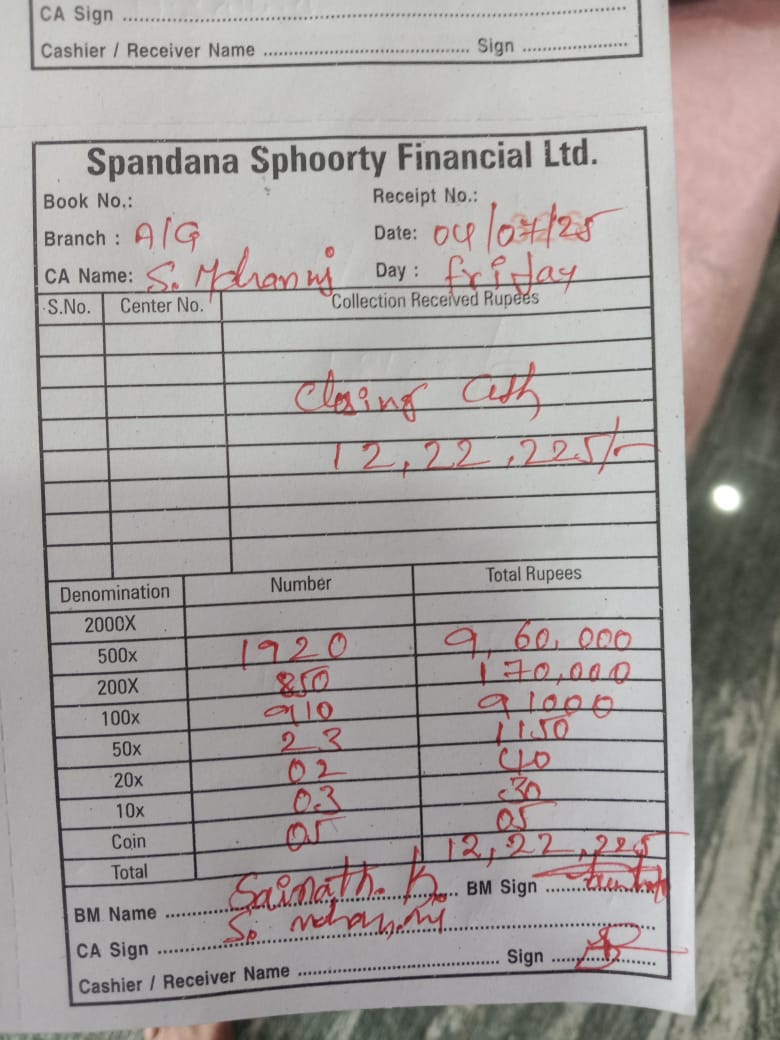 CA Sign
Cashier / Receiver Name Sign
Spandana Sphoorty Financial Ltd.
Book No.: Receipt No.:
Branch : A/G Date: 04/07/25
CA Name: S. Mohan Day : friday
S.No. Center No. Collection Received Rupees
Closing Cash
12,22,225/-
Denomination Number Total Rupees
2000X
500x 1920 9,60,000
200X 850 170,000
100x 910 91000
50x 23 1150
20x 02 40
10x 03 30
Coin 05 05
Total 12,22,225
BM Name Sainath. K. BM Sign
CA Sign S. Mohan
Cashier / Receiver Name Sign